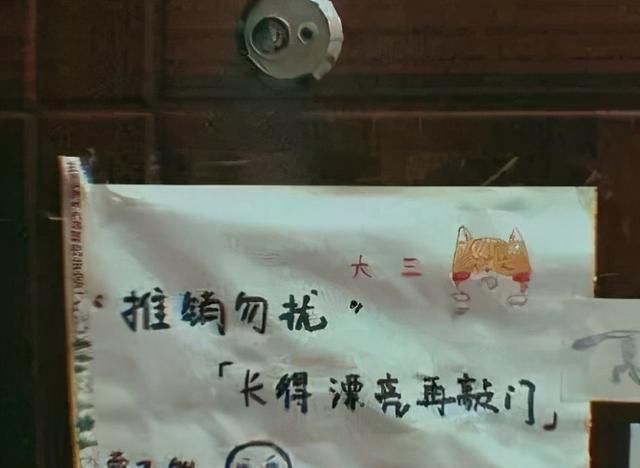 大三
“推销勿扰”
「长得漂亮再敲门」